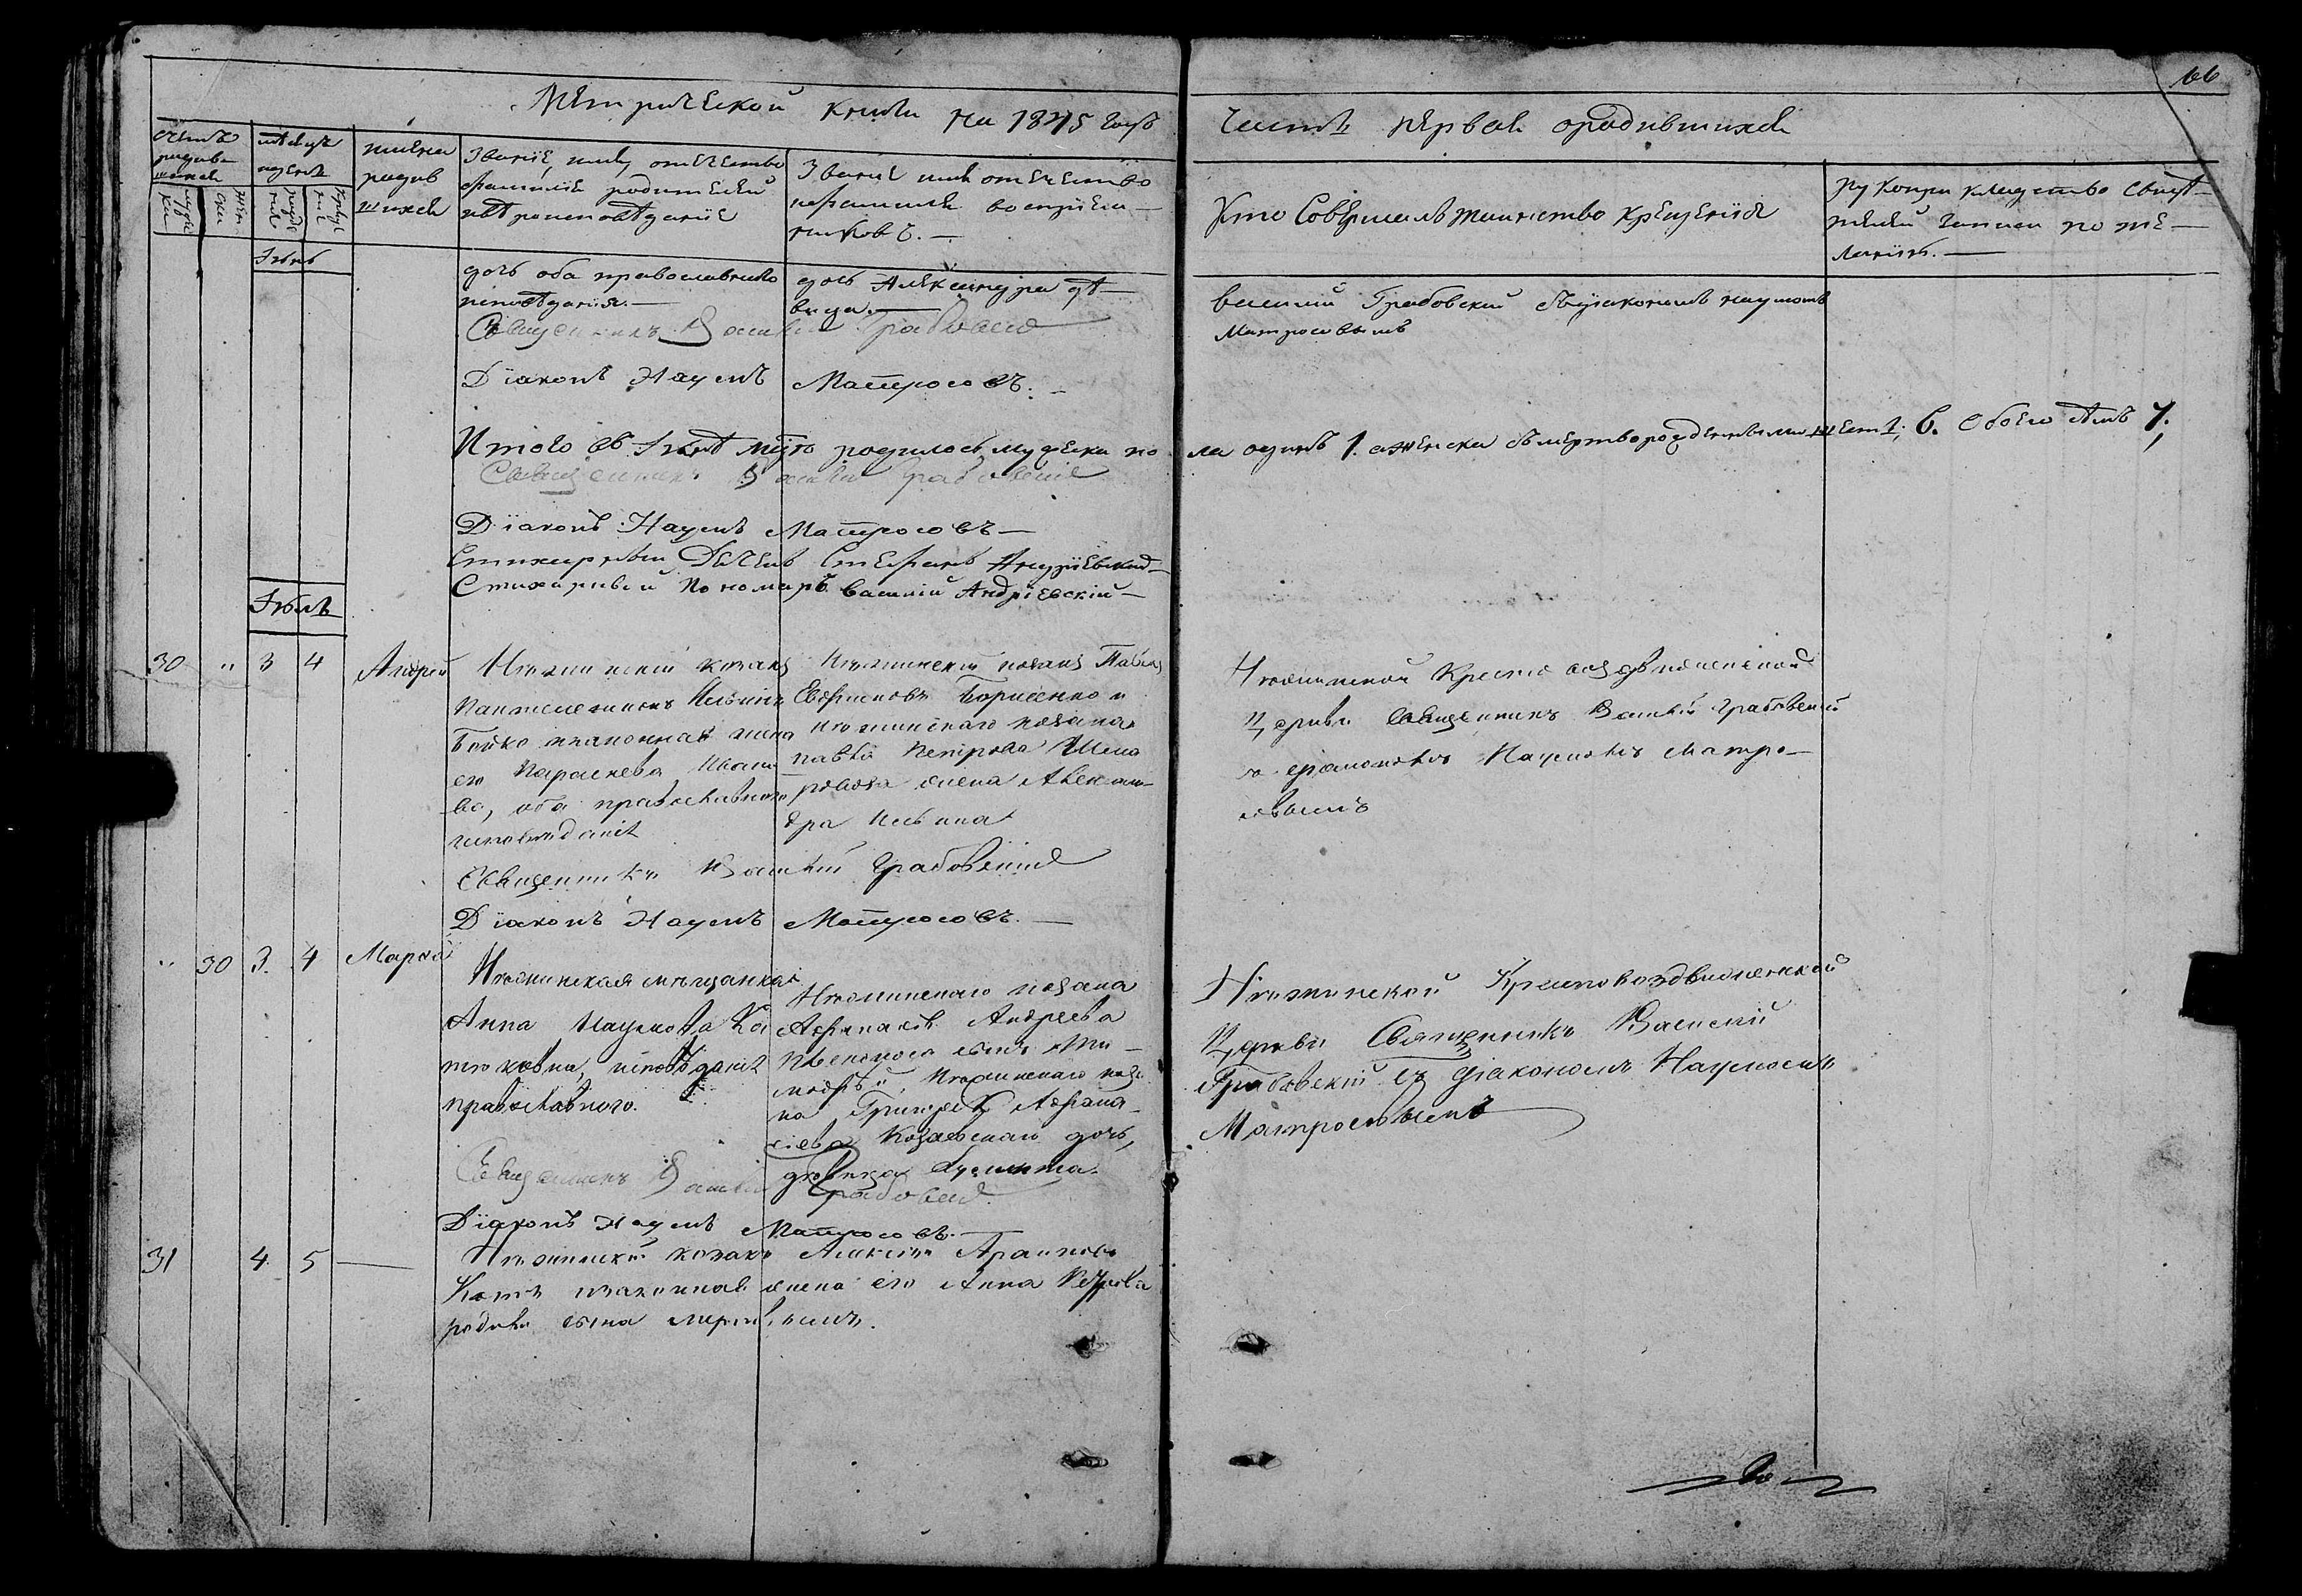 66
Метрической книги на 1845 годъ
Часть первая о родившихся
счетъ родившихся
мужеска
женска
мѣсяцъ и день
рожденія
крещенія
имена родившихся
Званіе, имя, отечество
фамилія родителей
и вѣроисповѣданіе
Званіе имя отечество
и фамилія воспріем-
никовъ.—
Кто Совершалъ таинство крещенія
рукоприкладство свидѣ-
телей записи по же-
ланію.—
Іюнь
дочь оба православнаго
исповѣданія.—
дочь Александра дѣ-
вица.—
Василий Грабовский съ діакономъ наумомъ
Матросовымъ
Священникъ Василій Грабовскій
Діаконъ Наумъ Матросовъ.—
Итого въ Іюнѣ м-цѣ родилось мужеска по
ла одинъ 1. а женска съ мертворожденными шест 6. обоего 7.
Священникъ Василій Грабовскій
Діаконъ Наумъ Матросовъ—
Стихарный Дьячекъ Стефанъ Андріевский—
Стихарный Пономарь василій Андріевскій—
Іюль
30 " 3 4 Андрей
Нѣжинскій козакъ
Пантелеимонъ Ильинъ
Бойко и законная жена
его Параскева Ивано
ва, оба православнаго
исповѣданія
Нѣжинскій козакъ Павелъ
Евфимовъ Борисенко и
Нѣжинскаго козака
Павла Петрова
жена Алексан-
дра Ильина
Нѣжинской Крестовоздвиженской
Церкви священникъ Василій Грабовскій
съ діакономъ Наумомъ Матро-
совымъ
Священникъ Василій Грабовскій
Діаконъ Наумъ Матросовъ.—
" 30 3. 4 Марѳа
Нѣжинская мѣщанка
Анна Наумова
исповѣданія
православного.
Нѣжинскаго козака
Афанасія Андреева
сынъ Ти-
мофѣй, Нѣжинскаго коза
ка Григорія Афана-
сіева дочь,
дѣвица
Нѣжинской Крестовоздвиженской
Церкви Священникъ Василій
Грабовскій съ діакономъ Наумомъ
Матросовымъ
Священникъ Василій Грабовскій
Діаконъ Наумъ Матросовъ.—
31 4. 5 —
Нѣжинскій козакъ Алексій
и законная жена его Анна Петрова
родили сына мертвымъ.